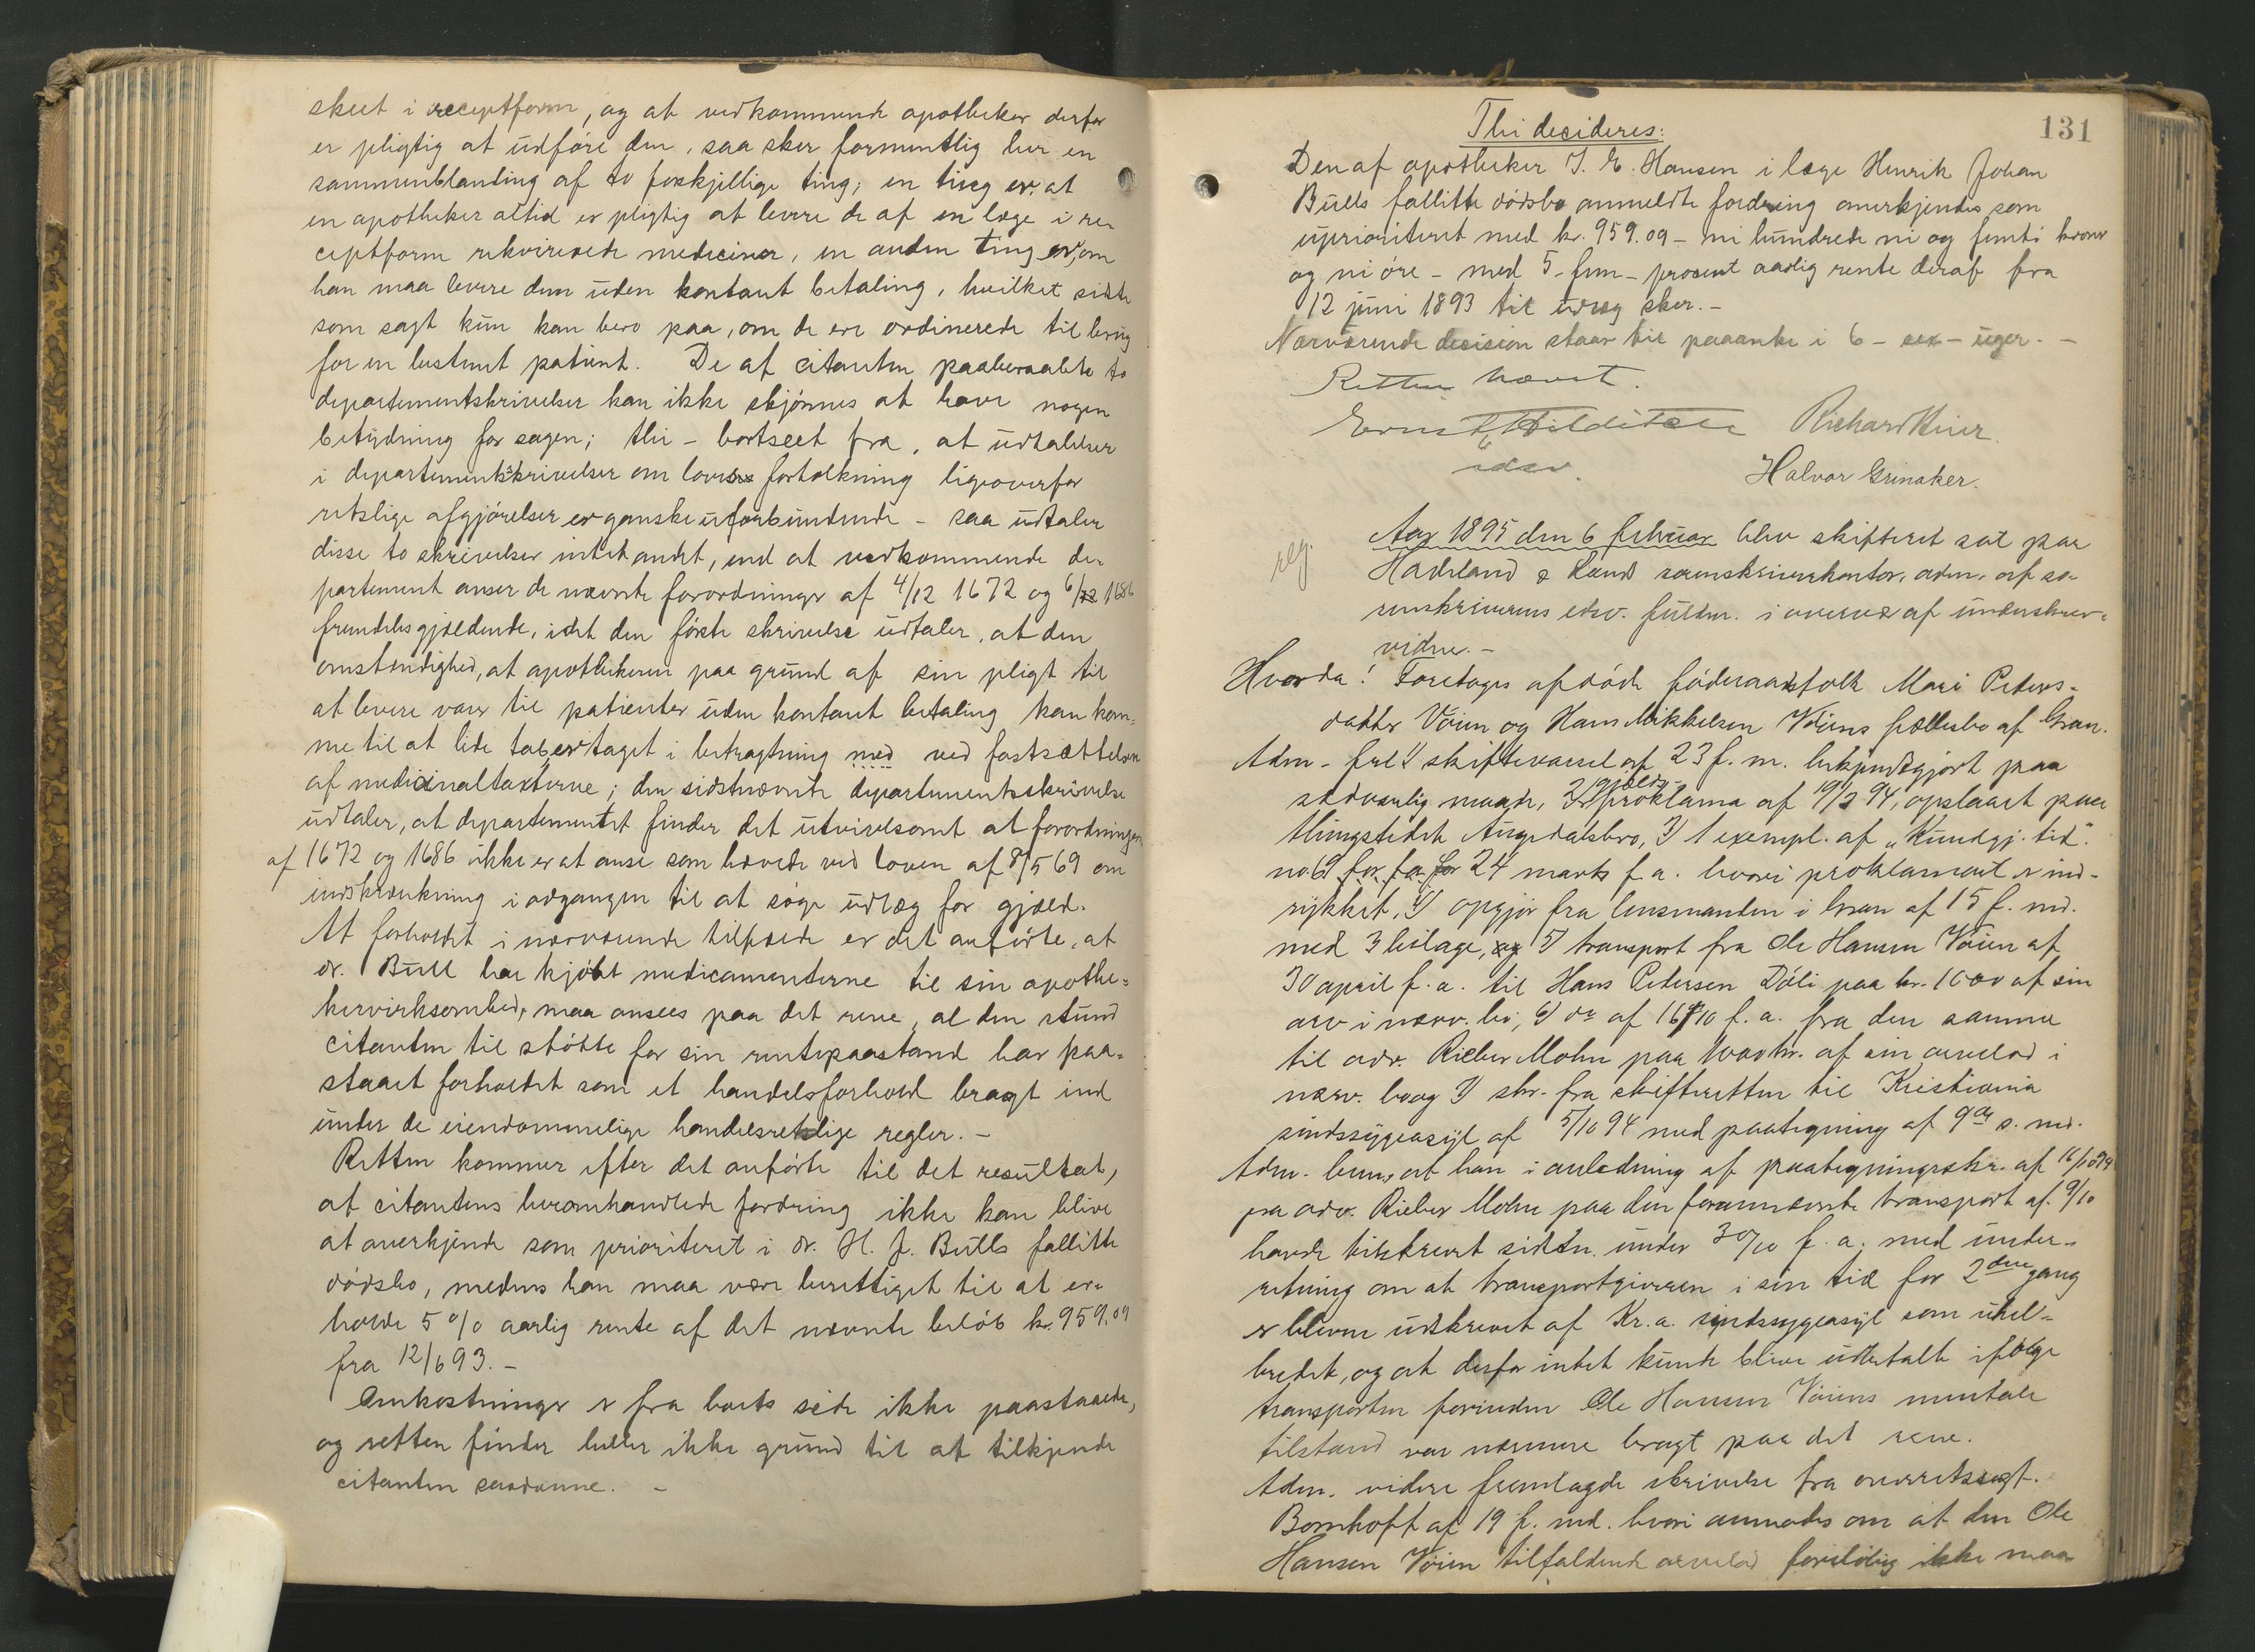 skeet i receptform, og at vedkommende apotheker derfor
er pligtig at udføre den, saa sker formentlig her en
sammenblanding af to forskjellige ting; en ting er, at
en apotheker altid er pligtig at levere de af en læge i re-
ceptform rekvirerede mediciner, en anden ting er, om
han maa levere dem uden kontant betaling, hvilket sidste
som sagt kun kan bero paa, om de ere ordinerede til brug
for en bestemt patient. De af citanten paaberaabte to
departementskrivelser kan ikke skjønnes at have nogen
betydning for sagen; thi - bortseet fra, at udtalelser
i departementsskrivelser om lovens fortolkning ligeoverfor
retslige afgjørelser er ganske uforbindende - saa udtaler
disse to skrivelser intet andet, end at vedkommende de-
partement anser de nævnte forordninger af 4/12 1672 og 6/12 1686
fremdeles gjældende, idet den første skrivelse udtaler, at den
omstændighed, at apothekeren paa grund af sin pligt til
at levere varer til patienter uden kontant betaling kan kom-
me til at lide tab, er taget i betragtning med ved fastsættelsen
af medicinaltaxterne; den sidstnævnte departementsskrivelse
udtaler, at departementet finder det utvivlsomt at forordningen
af 1672 og 1686 ikke er at anse som hævede ved loven af 8/5 69 om
indskrænkning i adgangen til at søge udlæg for gjæld.
At forholdet i nærværende tilfælde er det anførte, at
dr. Bull har kjøbt medicamenterne til sin apothe-
kervirksomhed, maa ansees paa det rene, al den stund
citanten til støtte for sin rentepaastand har paa-
staaet forholdet som et handelsforhold bragt ind
under de eiendommelige handelsretslige regler. -
Retten kommer efter det anførte til det resultat,
at citantens heromhandlede fordring ikke kan blive
at anerkjende som prioriteret i dr. H. J. Bulls fallitte
dødsbo, medens han maa være berettiget til at er-
holde 5 % aarlig rente af det nævnte beløb kr. 959.09
fra 12/6 93. -
Omkostninger er fra boets side ikke paastaaede,
og retten finder heller ikke grund til at tilkjende
citanten saadanne. -
131
Thi decideres:
Den af apotheker J. E. Hansen i læge Henrik Johan
Bulls fallitte dødsbo anmeldte fordring anerkjendes som
uprioriteret med kr. 959.09 - ni hundrede ni og femti kroner
og ni øre - med 5 - fem - procent aarlig rente deraf fra
12 juni 1893 til udlæg sker. -
Nærværende decision staar til paaanke i 6 - sex - uger. -
Retten hævet.
Ernst Hilditsch Richard Kiær.
edsv. Halvor Grinaker.
reg.
Aar 1895 den 6 februar blev skifteret sat paa
Hadeland & Land sorenskriverkontor, adm. af so-
renskriverens edsv. fuldm. i overvær af underskrevne
vidne. -
Hvorda! Foretages afdøde føderaadsfolk Mari Peders-
datter Vøien og Hans Mikkelsen Vøiens fællesbo af Gran.
Adm. frel. 1) skiftevarsel af 23 f. m. bekjendtgjort paa
sædvanlig maade, 2) gjælds-proklama af 19/3 94, opslaaet paa
thingstedet Augedalsbro, 3) 1 exempl. af "Kundgj. tid."
no 69 for 24 marts f. a. hvori proklamaet er ind-
rykket, 4) opgjør fra lensmanden i Gran af 15 f. md.
med 3 bilage, 5) transport fra Ole Hansen Vøien af
30 april f. a. til Hans Pedersen Døli paa kr. 1000 af sin
arv i nærv. bo, 6) do af 16/10 f. a. fra den samme
til adv. Rieber Mohn paa 1000 kr. af sin arvelod i
nærv. bo og 7) skr. fra skifteretten til Kristiania
sindssygeasyl af 5/10 94 med paategning af 9de s. md.
Adm. bem., at han i anledning af paategningsskr. af 16/10 94
fra adv. Rieber Mohn paa den forannævnte transport af 9/10
havde tilskrevet sidstn. under 30/10 f. a. med under-
retning om at transportgiveren i sin tid for 2den gang
er bleven udskrevet af Kr.a. sindssygeasyl som uhel-
bredet, og at derfor intet kunde blive udbetalt ifølge
transporten forinden Ole Hansen Vøiens mentale
tilstand var nærmere bragt paa det rene.
Adm. videre fremlagde skrivelse fra overretssagf.
Bomhoff af 19 f. md. hvori anmodes om at den Ole
Hansen Vøien tilfaldende arvelod foreløbig ikke maa